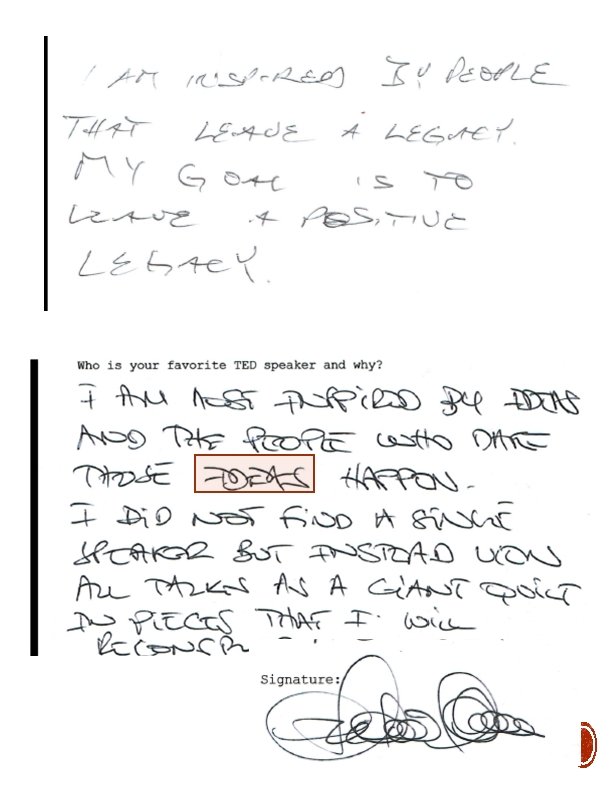 I AM INSPIRED BY PEOPLE
THAT LEAVE A LEGACY.
MY GOAL IS TO
LEAVE A POSITIVE
LEGACY.
Who is your favorite TED speaker and why?
I AM MOST INSPIRED BY IDEAS
AND THE PEOPLE WHO MAKE
THOSE IDEAS HAPPEN.
I DID NOT FIND A SINGLE
SPEAKER BUT INSTEAD VIEW
ALL TALKS AS A GIANT QUILT
IN PIECES THAT I WILL
Signature: